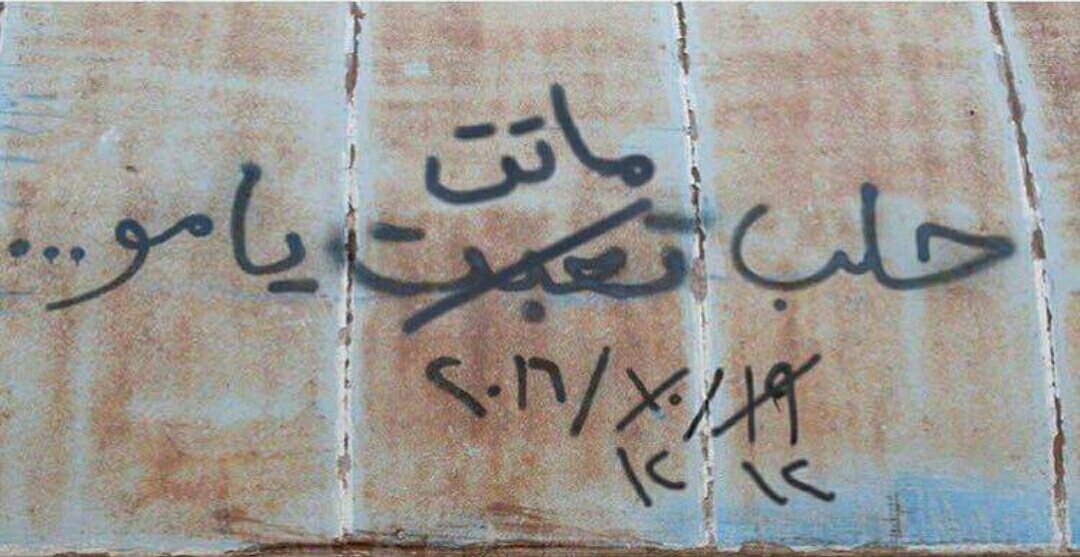 ماتت
حلب تعبت يا مو...
١٩/١٠/٢٠١٦
١٢ ١٢